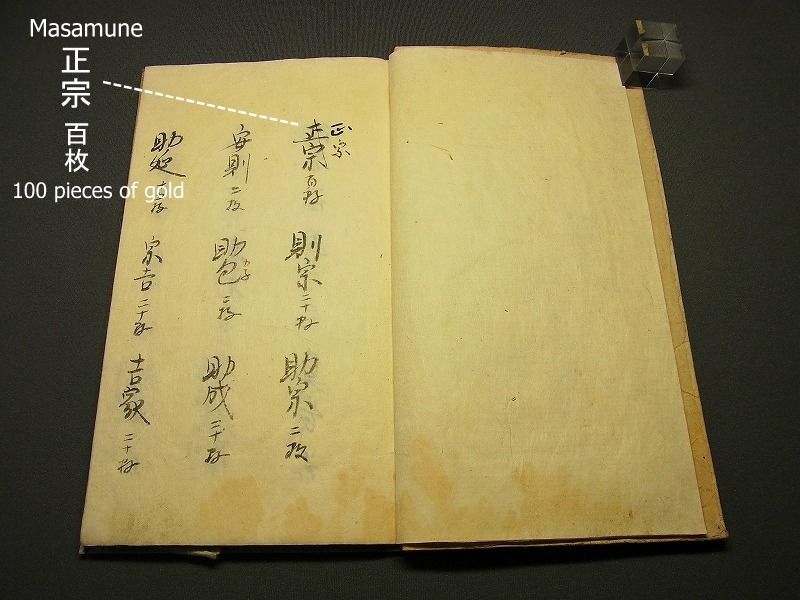 Masamune
正宗 百枚
100 pieces of gold
正宗
正宗 百枚
則宗 二十枚
助宗 二枚
安則 二枚
助包 カ子
助成
助延
宗吉 二十枚
吉家 二十枚